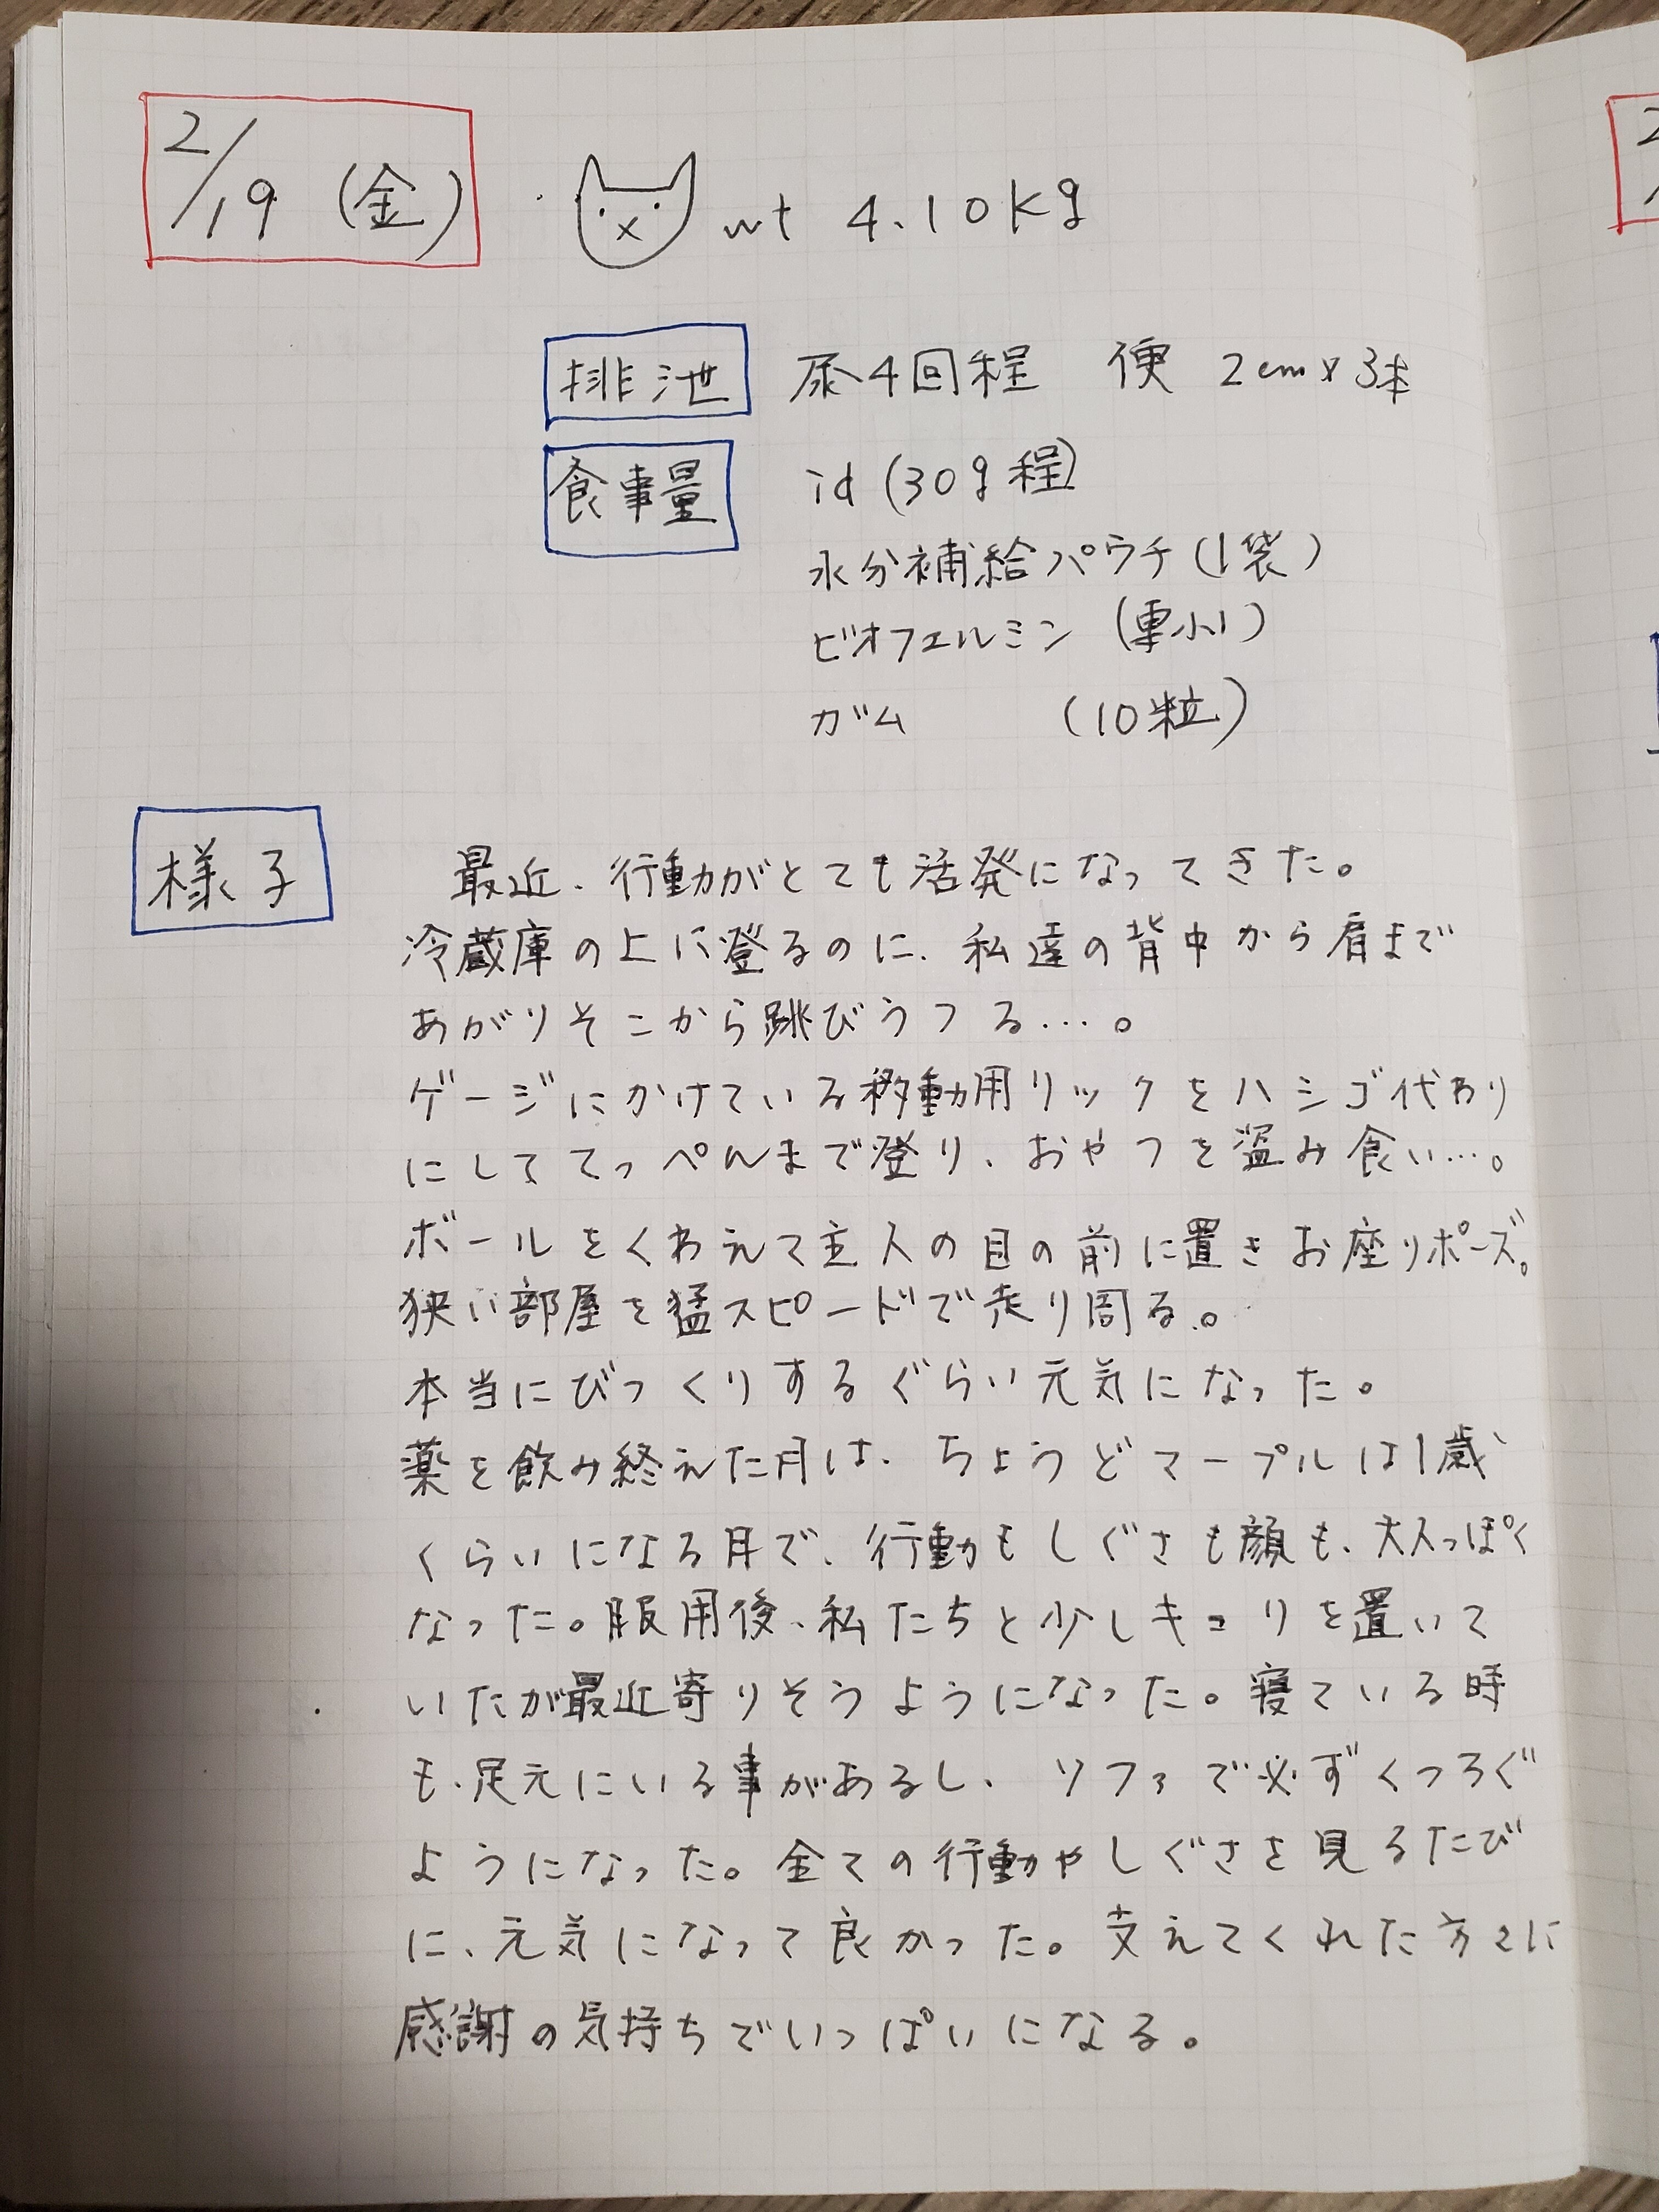 2/19 (金)
wt 4.10kg
排泄 尿4回程 便 2cm×3本
食事量 id (30g程)
水分補給パウチ(1袋)
ビオフェルミン (小1)
ガム (10粒)
様子
最近、行動がとても活発になってきた。
冷蔵庫の上に登るのに、私達の背中から肩まで
あがりそこから跳びうつる…。
ゲージにかけている移動用リックをハシゴ代わり
にしててっぺんまで登り、おやつを盗み食い…。
ボールをくわえて主人の目の前に置きお座りポーズ。
狭い部屋を猛スピードで走り周る。
本当にびっくりするぐらい元気になった。
薬を飲み終えた月は、ちょうどマープルは1歳
くらいになる月で、行動もしぐさも顔も、大人っぽく
なった。服用後、私たちと少しキョリを置いて
いたが最近寄りそうようになった。寝ている時
も、足元にいる事があるし、ソファで必ずくつろぐ
ようになった。全ての行動やしぐさを見るたび
に、元気になって良かった。支えてくれた方々に
感謝の気持ちでいっぱいになる。